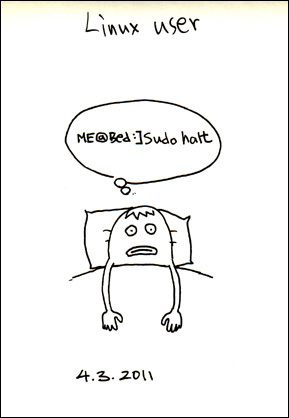 Linux user
ME@Bed:]Sudo halt
4.3.2011